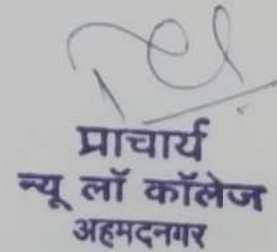 प्राचार्य
न्यू लॉ कॉलेज
अहमदनगर